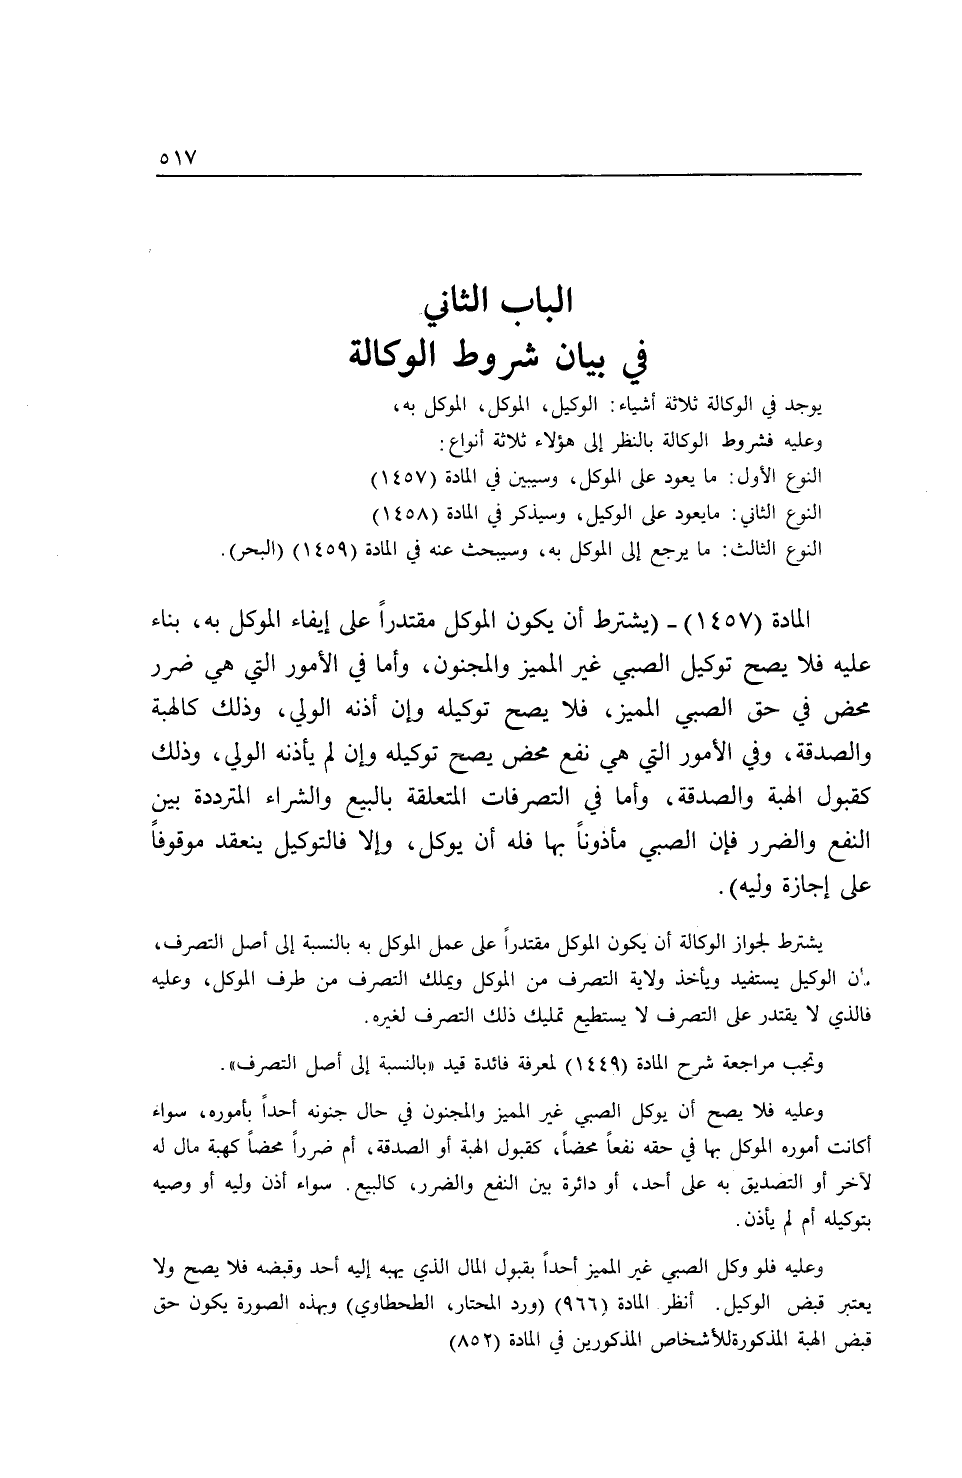 ٥١٧
الباب الثاني
في بيان شروط الوكالة
يوجد في الوكالة ثلاثة أشياء: الوكيل، الموكل، الموكل به،
وعليه فشروط الوكالة بالنظر إلى هؤلاء ثلاثة أنواع:
النوع الأول: ما يعود على الموكل، وسيبين في المادة (١٤٥٧)
النوع الثاني: مايعود على الوكيل، وسيذكر في المادة (١٤٥٨)
النوع الثالث: ما يرجع إلى الموكل به، وسيبحث عنه في المادة (١٤٥٩) (البحر).
المادة (١٤٥٧) - (يشترط أن يكون الموكل مقتدراً على إيفاء الموكل به، بناء
عليه فلا يصح توكيل الصبي غير المميز والمجنون، وأما في الأمور التي هي ضرر
محض في حق الصبي المميز، فلا يصح توكيله وإن أذنه الولي، وذلك كالهبة
والصدقة، وفي الأمور التي هي نفع محض يصح توكيله وإن لم يأذنه الولي، وذلك
كقبول الهبة والصدقة، وأما في التصرفات المتعلقة بالبيع والشراء المترددة بين
النفع والضرر فإن الصبي مأذوناً بها فله أن يوكل، وإلا فالتوكيل ينعقد موقوفاً
على إجازة وليه).
يشترط لجواز الوكالة أن يكون الموكل مقتدراً على عمل الموكل به بالنسبة إلى أصل التصرف،
لأن الوكيل يستفيد ويأخذ ولاية التصرف من الموكل ويملك التصرف من طرف الموكل، وعليه
فالذي لا يقتدر على التصرف لا يستطيع تمليك ذلك التصرف لغيره.
وتجب مراجعة شرح المادة (١٤٤٩) لمعرفة فائدة قيد «بالنسبة إلى أصل التصرف».
وعليه فلا يصح أن يوكل الصبي غير المميز والمجنون في حال جنونه أحداً بأموره، سواء
أكانت أموره الموكل بها في حقه نفعاً محضاً، كقبول الهبة أو الصدقة، أم ضرراً محضاً كهبة مال له
لآخر أو التصديق به على أحد، أو دائرة بين النفع والضرر، كالبيع. سواء أذن وليه أو وصيه
بتوكيله أم لم يأذن.
وعليه فلو وكل الصبي غير المميز أحداً بقبول المال الذي يهبه إليه أحد وقبضه فلا يصح ولا
يعتبر قبض الوكيل. أنظر المادة (٩٦٦) (ورد المحتار، الطحطاوي) وبهذه الصورة يكون حق
قبض الهبة المذكورةللأشخاص المذكورين في المادة (٨٥٢)